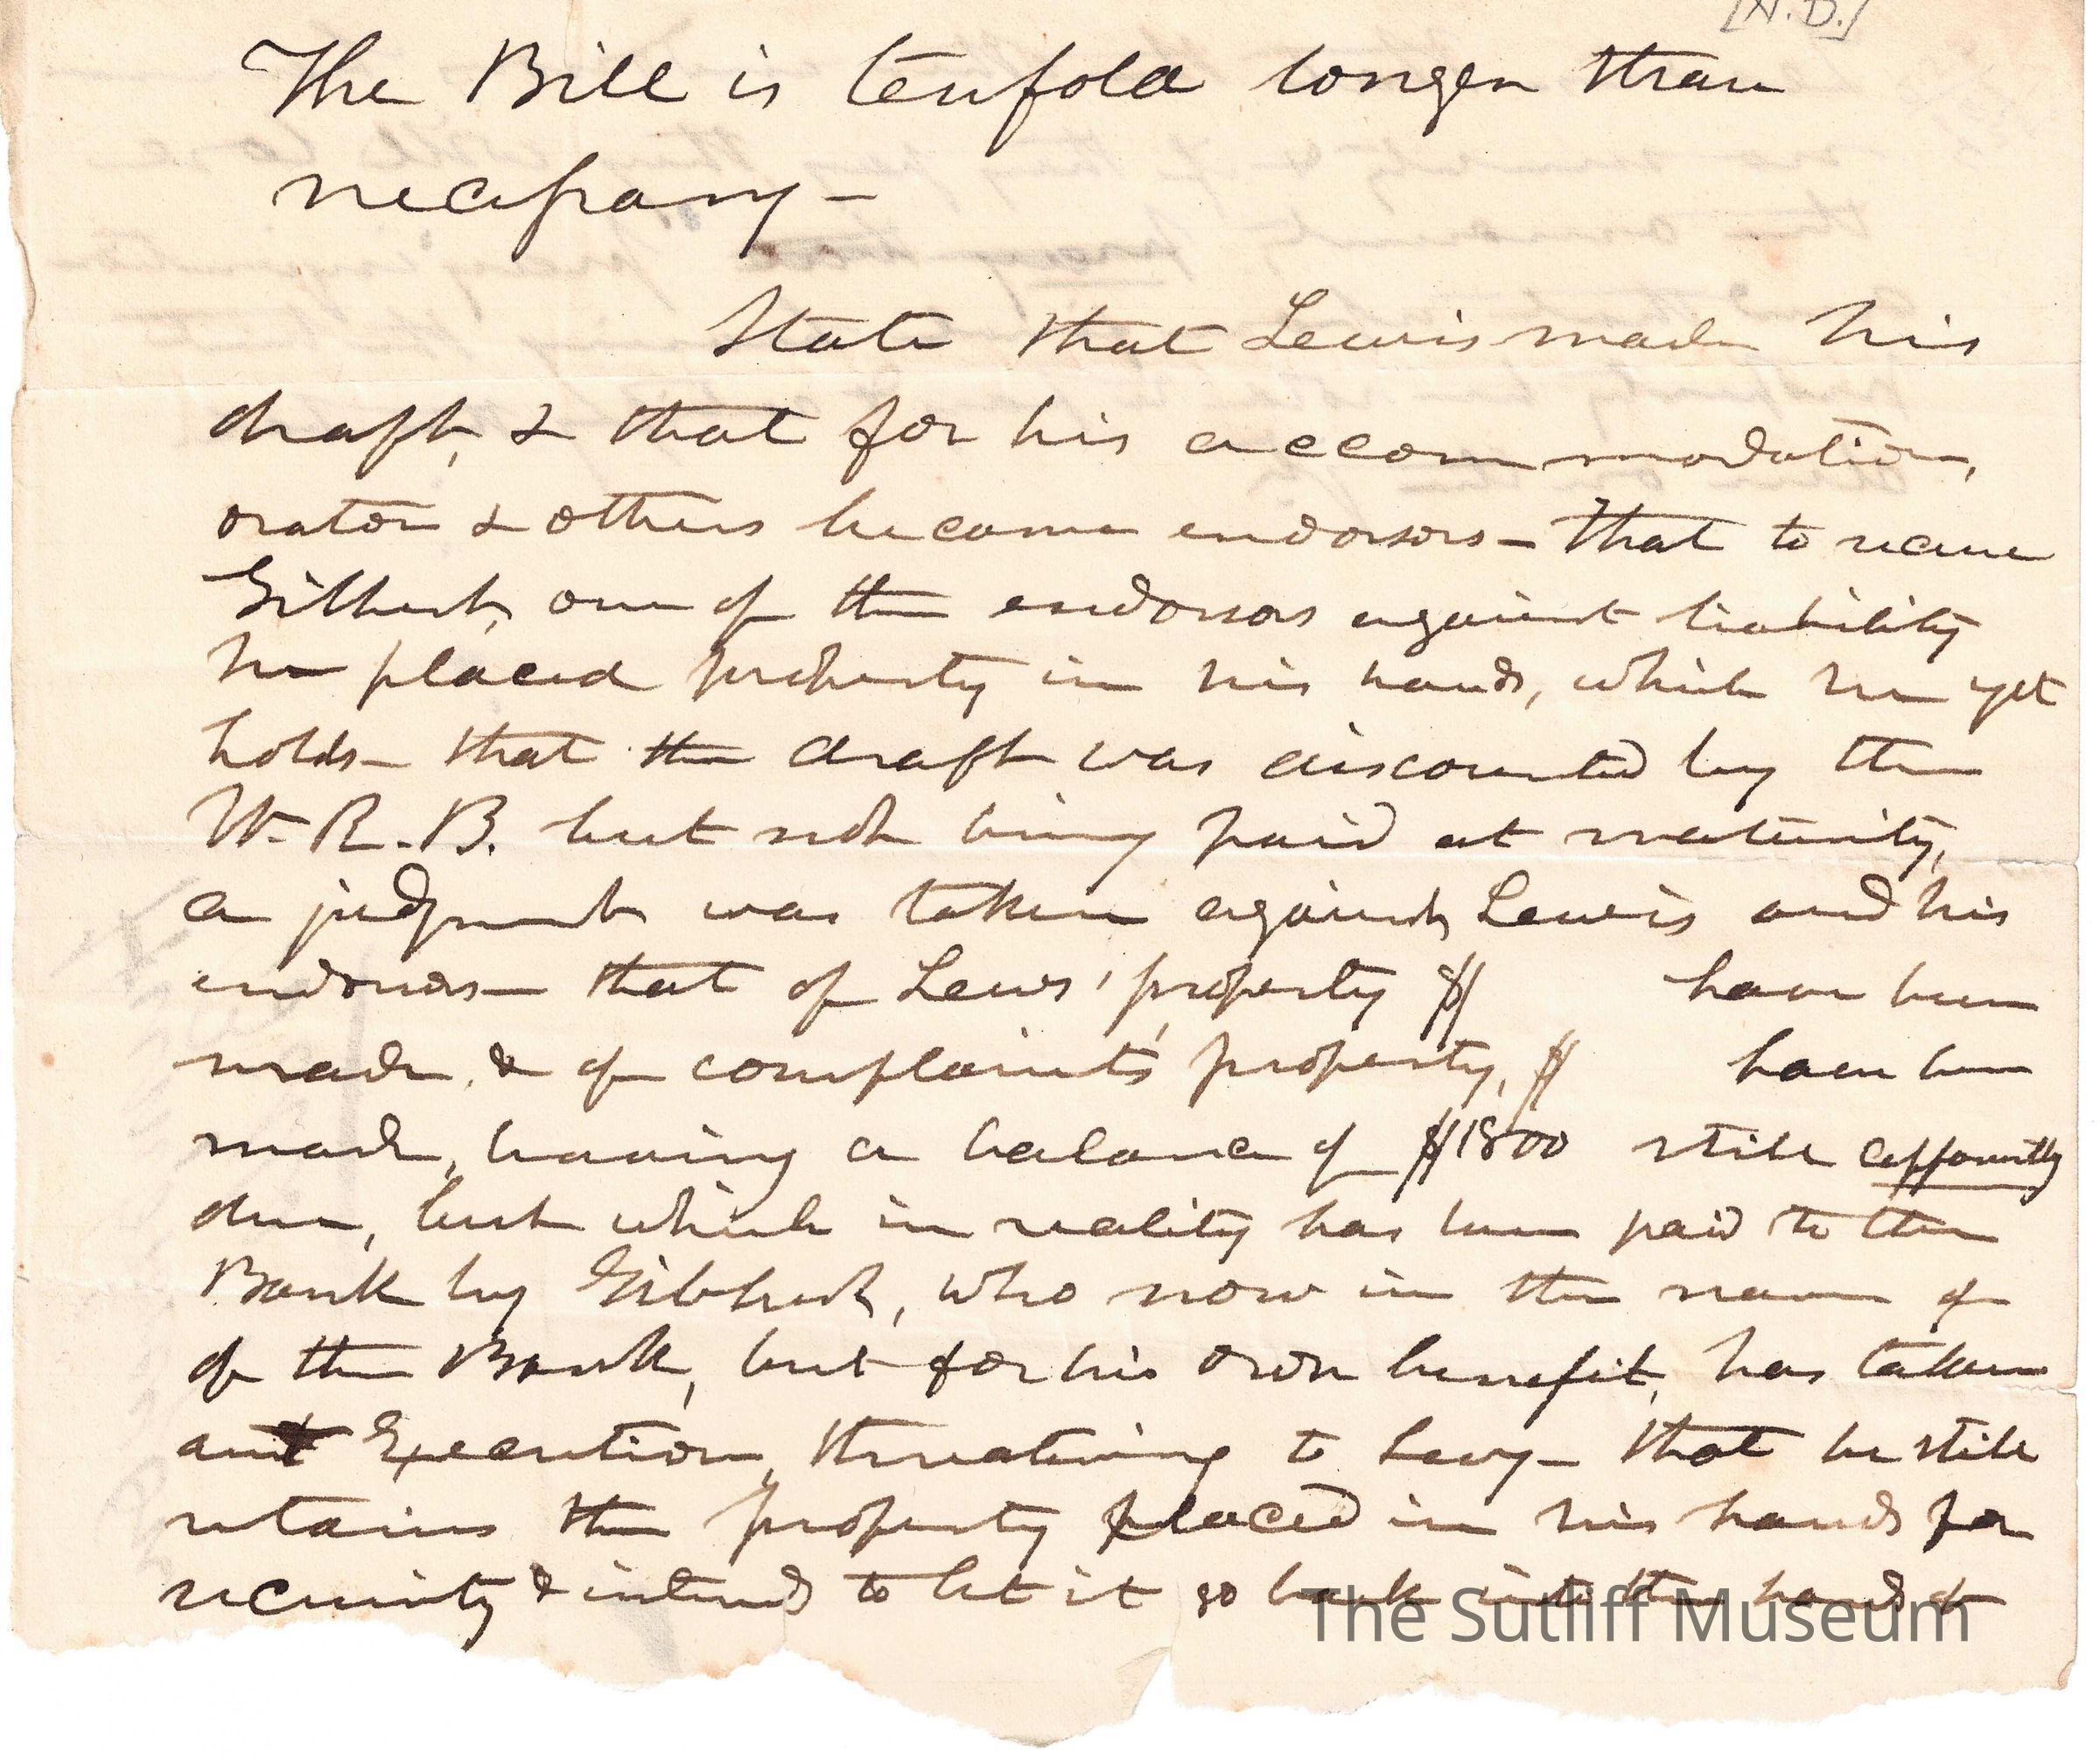 [N.D.]
The Bill is tenfold longer than
necessary —
State that Lewis made his
draft, & that for his accommodation,
orator & others became endorsors — that to secure
Gilbert, one of the endorsors against liability
he placed property in his hands, which he yet
holds — that the draft was discounted by the
W. R. B. but not being paid at maturity,
a judgment was taken against Lewis and his
endorsors — that of Lewis' property $ have been
made, & of complaints property, $ have been
made, leaving a balance of $1800 still apparently
due, but which in reality has been paid to the
Bank by Gilbert, who now in the name of
of the Bank, but for his own benefit, has taken
an Execution, threatening to levy — that he still
retains the property placed in his hands for
security & intends to let it go back into the hands of
The Sutliff Museum